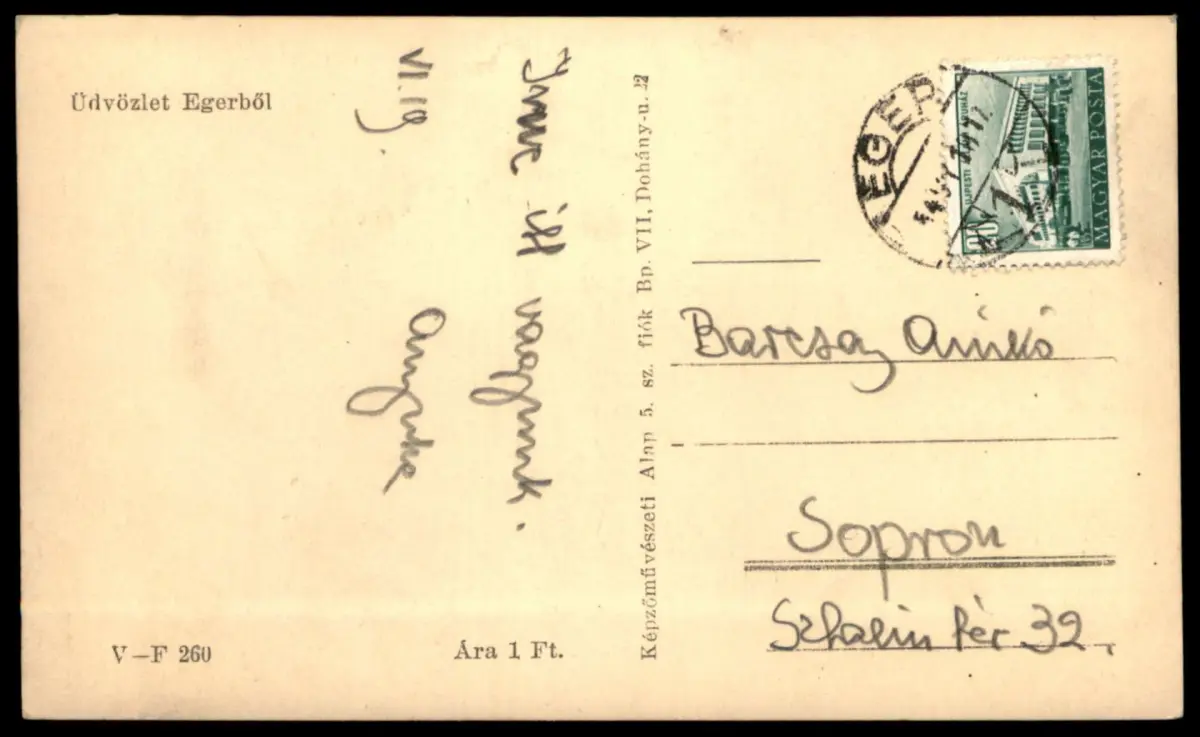 Üdvözlet Egerből
VI. 19
itt vagyunk.
Anyuka
V-F 260
Ára 1 Ft.
Képzőművészeti Alap 5. sz. fiók Bp. VII, Dohány-u. 22
EGER
1
MAGYAR POSTA
Barcsay Anikó
Sopron
Sztalin tér 32.